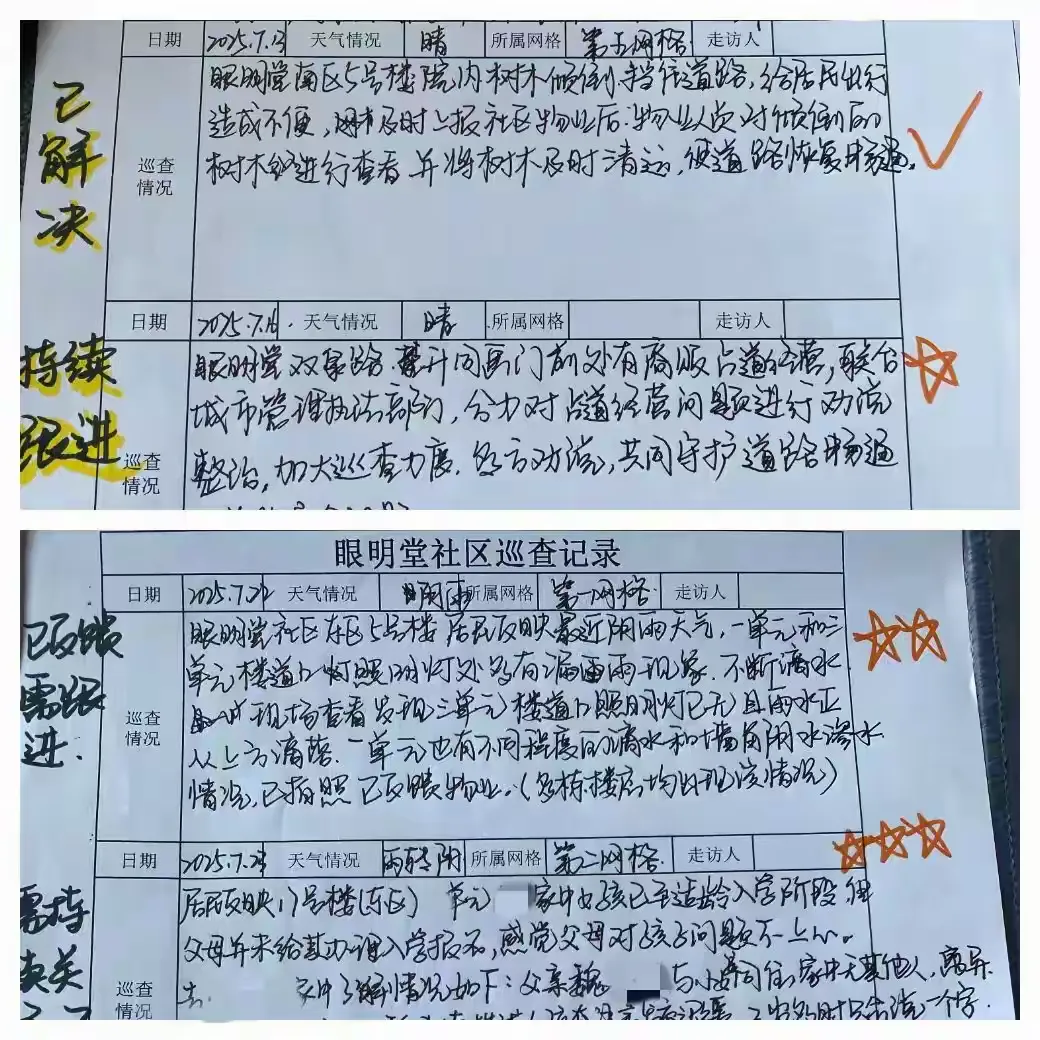 日期 2025.7.13 天气情况 晴 所属网格 第五网格 走访人
已解决
巡查情况
眼明堂南区5号楼院内树木倾倒,挡住道路,给居民出行
造成不便,及时上报社区物业后.物业人员对倾倒的
树木进行查看并将树木及时清运,使道路恢复畅通。
日期 2025.7.16. 天气情况 晴 所属网格 走访人
持续跟进
巡查情况
眼明堂双泉路 门前处有商贩占道经营,联合
城市管理执法部门,合力对占道经营问题进行劝说
整治,加大巡查力度.多方劝说,共同守护道路畅通
眼明堂社区巡查记录
日期 2025.7.22 天气情况 所属网格 第一网格 走访人
已反馈需跟进.
巡查情况
眼明堂社区东区5号楼居民反映最近阴雨天气,一单元和三
单元楼道口灯照明灯处多有漏雨现象,不断滴水.
现场查看发现三单元楼道口照明灯已无且雨水正
从上方滴落.一单元也有不同程度的滴水和墙角阴水渗水
情况,已拍照已反馈物业.(多栋楼房均出现该情况)
日期 2025.7.2 天气情况 雨转阴 所属网格 第二网格 走访人
需持
关
巡查情况
居民反映17号楼(东区) 单元 家中女孩已至适龄入学阶段,但
父母并未给其办理入学报名,感觉父母对孩子问题不上心。
去 家中了解情况如下:父亲魏 与小 同住,家中无其他人,离异